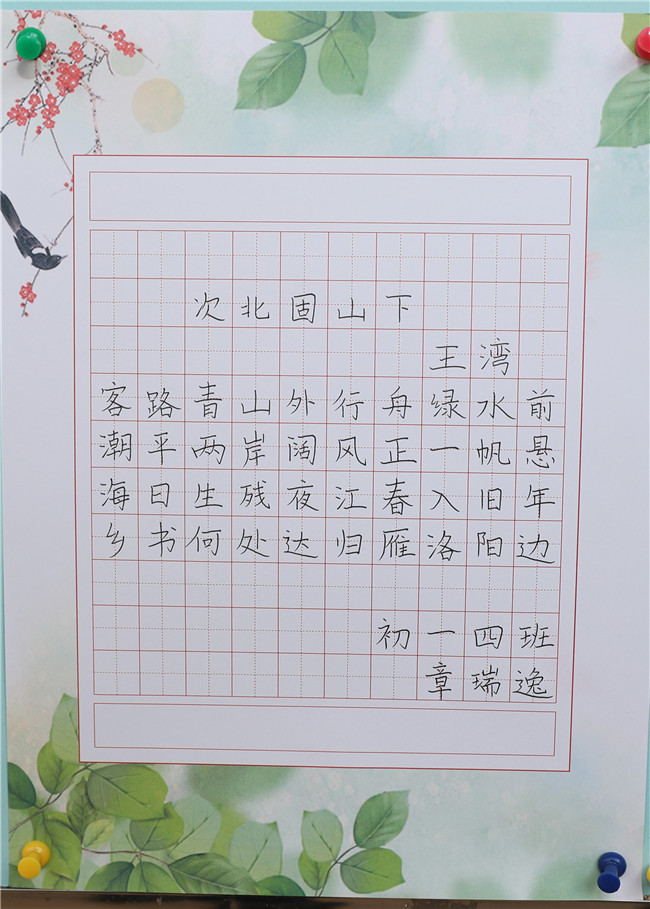 次北固山下
王湾
客路青山外行舟绿水前
潮平两岸阔风正一帆悬
海日生残夜江春入旧年
乡书何处达归雁洛阳边
初一四班
章瑞逸